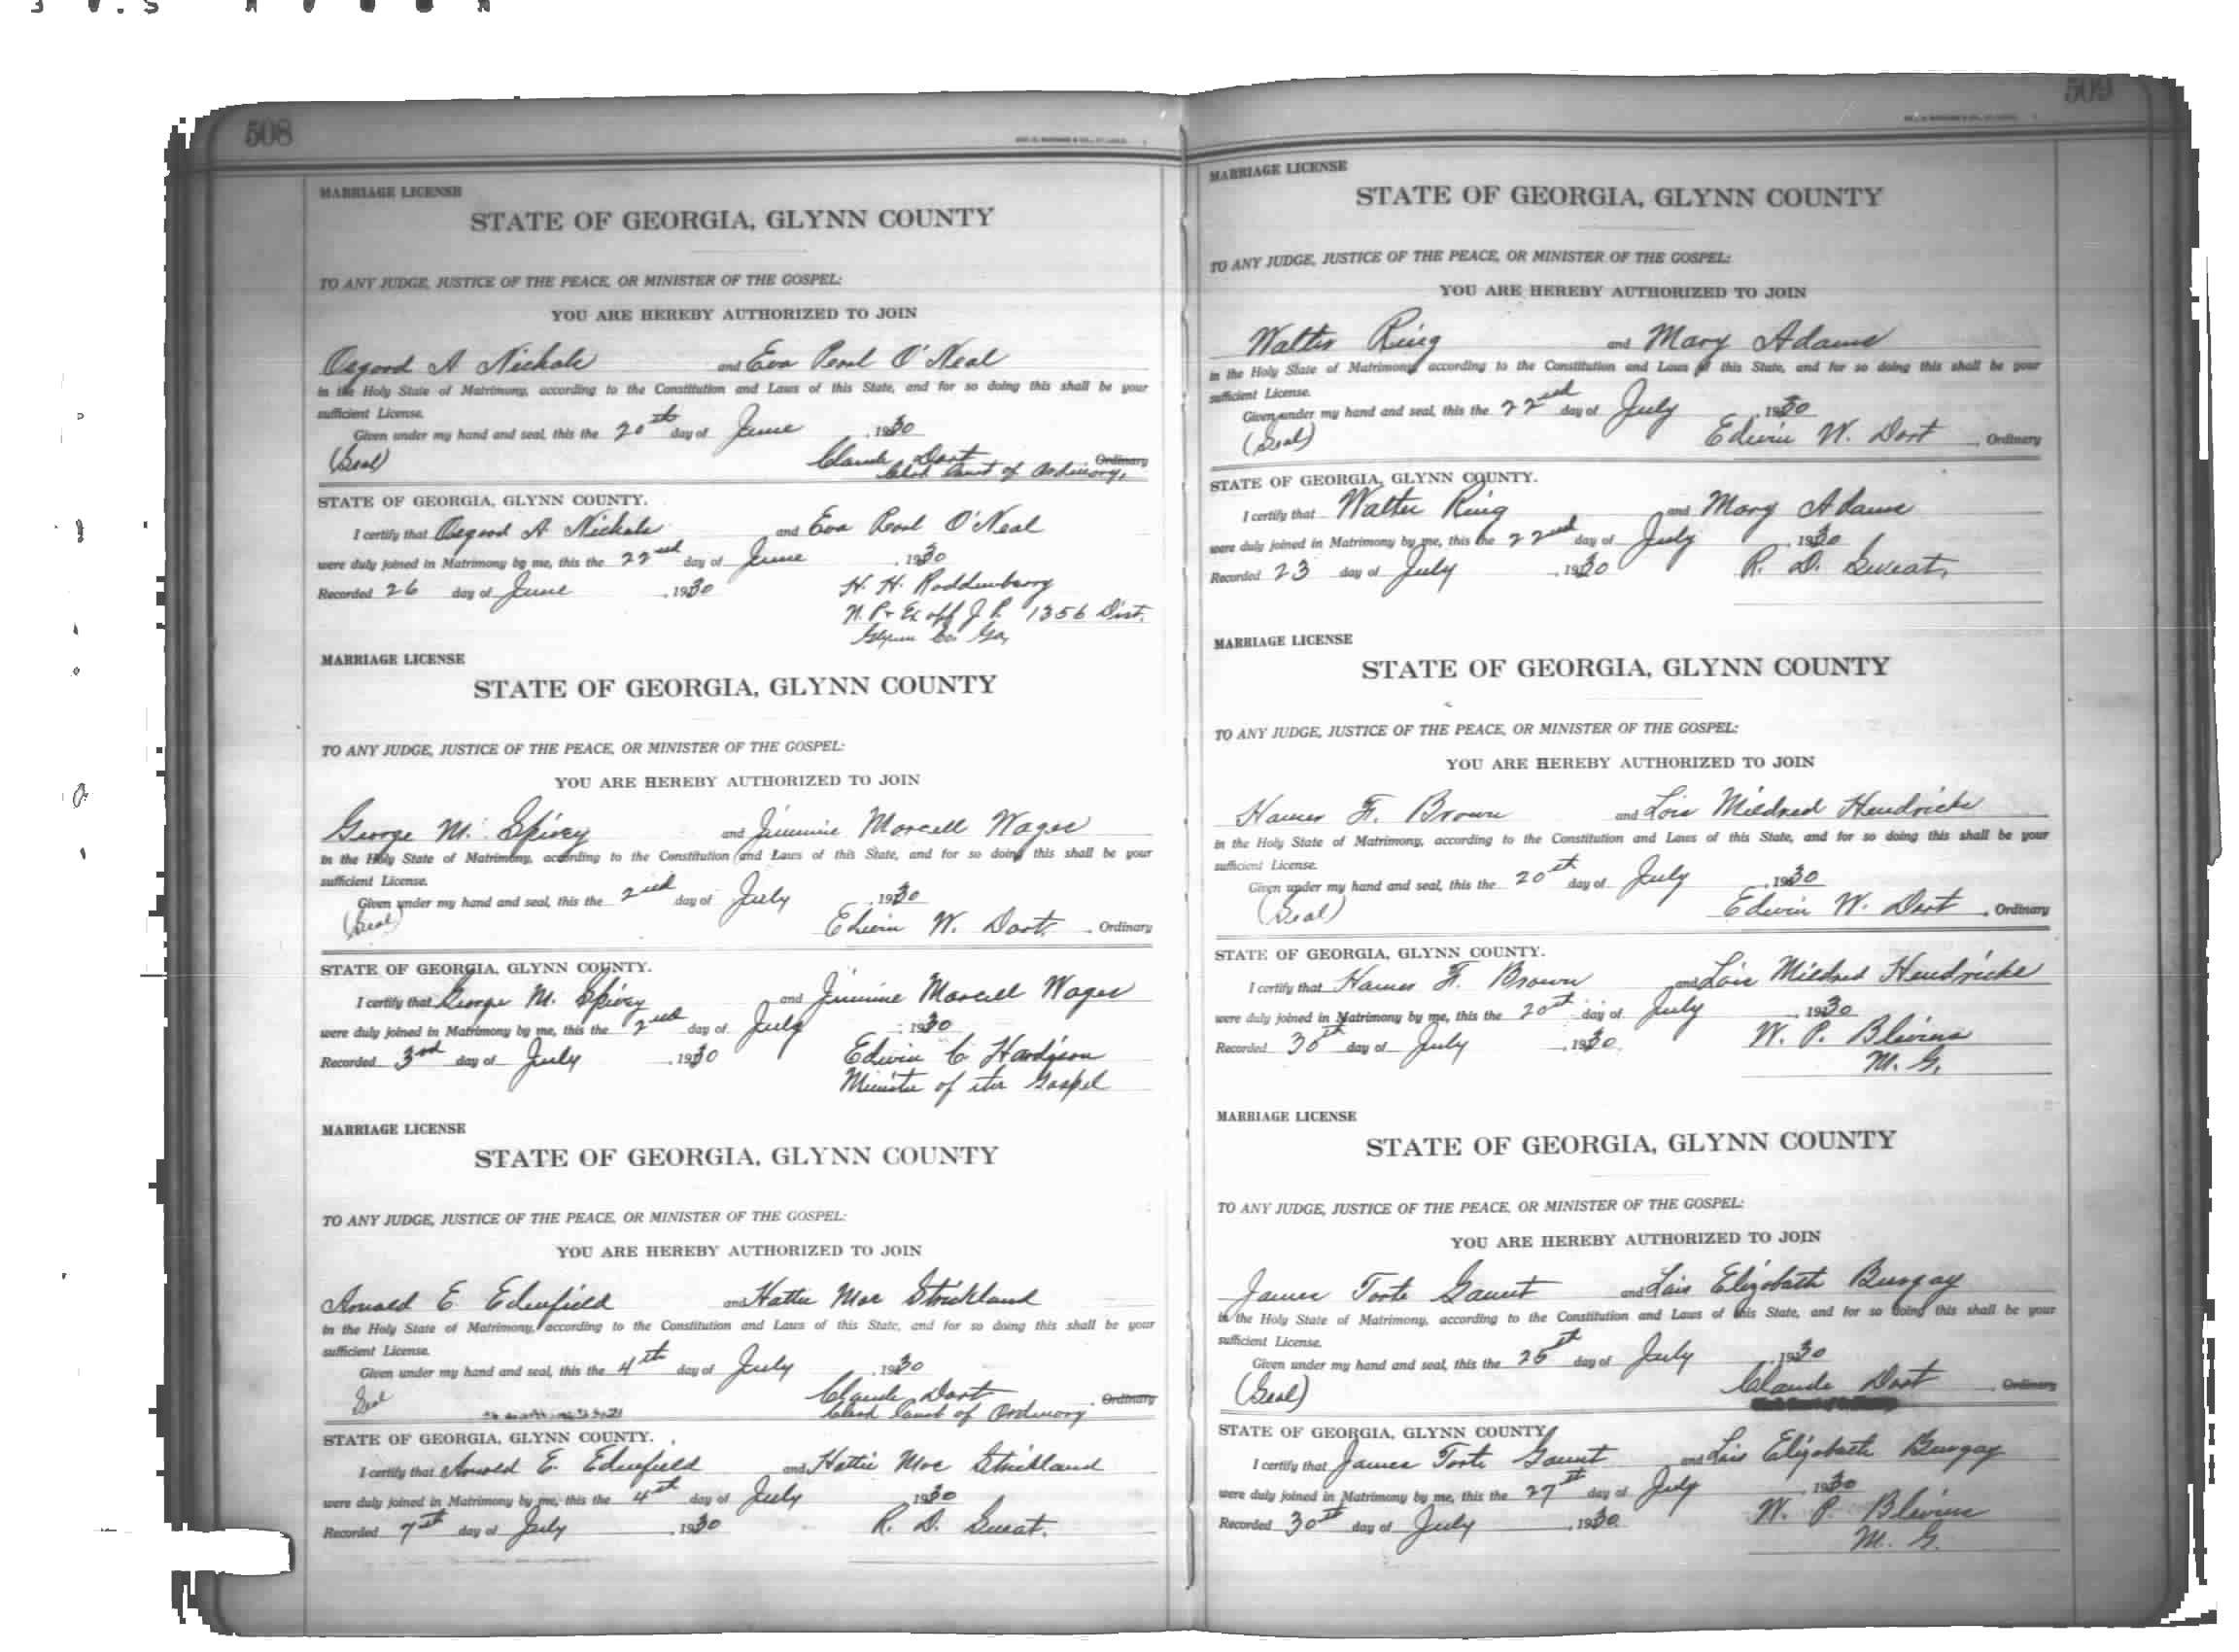 508
MARRIAGE LICENSE
STATE OF GEORGIA, GLYNN COUNTY
TO ANY JUDGE, JUSTICE OF THE PEACE, OR MINISTER OF THE GOSPEL:
YOU ARE HEREBY AUTHORIZED TO JOIN
Osgood A Nichols and Eva Pearl O'Neal
in the Holy State of Matrimony, according to the Constitution and Laws of this State, and for so doing this shall be your
sufficient License.
Given under my hand and seal, this the 20th day of June, 1930
(Seal) Claude Dart Ordinary
Clerk Court of Ordinary.
STATE OF GEORGIA, GLYNN COUNTY.
I certify that Osgood A Nichols and Eva Pearl O'Neal
were duly joined in Matrimony by me, this the 22nd day of June, 1930
Recorded 26 day of June, 1930 H. H. Roddenberry
N. P. & Ex off J. P. 1356 Dist.
Glynn Co. Ga,
MARRIAGE LICENSE
STATE OF GEORGIA, GLYNN COUNTY
TO ANY JUDGE, JUSTICE OF THE PEACE, OR MINISTER OF THE GOSPEL:
YOU ARE HEREBY AUTHORIZED TO JOIN
George M. Spivey and Jimmie Marcell Wages
in the Holy State of Matrimony, according to the Constitution and Laws of this State, and for so doing this shall be your
sufficient License.
Given under my hand and seal, this the 2nd day of July, 1930
(Seal) Edwin W. Dart, Ordinary
STATE OF GEORGIA, GLYNN COUNTY.
I certify that George M. Spivey and Jimmie Marcell Wages
were duly joined in Matrimony by me, this the 2nd day of July, 1930
Recorded 3rd day of July, 1930 Edwin C Hardison
Minister of the Gospel
MARRIAGE LICENSE
STATE OF GEORGIA, GLYNN COUNTY
TO ANY JUDGE, JUSTICE OF THE PEACE, OR MINISTER OF THE GOSPEL:
YOU ARE HEREBY AUTHORIZED TO JOIN
Arnold E Edenfield and Hattie Mae Strickland
in the Holy State of Matrimony, according to the Constitution and Laws of this State, and for so doing this shall be your
sufficient License.
Given under my hand and seal, this the 4th day of July, 1930
Seal Claude Dart, Ordinary
Clerk Court of Ordinary
STATE OF GEORGIA, GLYNN COUNTY.
I certify that Arnold E. Edenfield and Hattie Mae Strickland
were duly joined in Matrimony by me, this the 4th day of July, 1930
Recorded 7th day of July, 1930 R. D. Sweat.
509
MARRIAGE LICENSE
STATE OF GEORGIA, GLYNN COUNTY
TO ANY JUDGE, JUSTICE OF THE PEACE, OR MINISTER OF THE GOSPEL:
YOU ARE HEREBY AUTHORIZED TO JOIN
Walter Ring and Mary Adams
in the Holy State of Matrimony according to the Constitution and Laws of this State, and for so doing this shall be your
sufficient License.
Given under my hand and seal, this the 22nd day of July, 1930
(Seal) Edwin W. Dart, Ordinary
STATE OF GEORGIA, GLYNN COUNTY.
I certify that Walter Ring and Mary Adams
were duly joined in Matrimony by me, this the 22nd day of July, 1930
Recorded 23 day of July, 1930 R. D. Sweat,
MARRIAGE LICENSE
STATE OF GEORGIA, GLYNN COUNTY
TO ANY JUDGE, JUSTICE OF THE PEACE, OR MINISTER OF THE GOSPEL:
YOU ARE HEREBY AUTHORIZED TO JOIN
Hamer F. Brown and Lois Mildred Hendricks
in the Holy State of Matrimony, according to the Constitution and Laws of this State, and for so doing this shall be your
sufficient License.
Given under my hand and seal, this the 20th day of July, 1930
(Seal) Edwin W. Dart, Ordinary
STATE OF GEORGIA, GLYNN COUNTY.
I certify that Hamer F. Brown and Lois Mildred Hendricks
were duly joined in Matrimony by me, this the 20th day of July, 1930
Recorded 30th day of July, 1930. W. P. Blevins
M. G.
MARRIAGE LICENSE
STATE OF GEORGIA, GLYNN COUNTY
TO ANY JUDGE, JUSTICE OF THE PEACE, OR MINISTER OF THE GOSPEL:
YOU ARE HEREBY AUTHORIZED TO JOIN
James Gaunt and Lois Elizabeth
in the Holy State of Matrimony, according to the Constitution and Laws of this State, and for so doing this shall be your
sufficient License.
Given under my hand and seal, this the 25th day of July, 1930
(Seal) Claude Dart, Ordinary
STATE OF GEORGIA, GLYNN COUNTY
I certify that James Gaunt and Lois Elizabeth
were duly joined in Matrimony by me, this the 27th day of July, 1930
Recorded 30th day of July, 1930. W. P. Blevins
M. G.